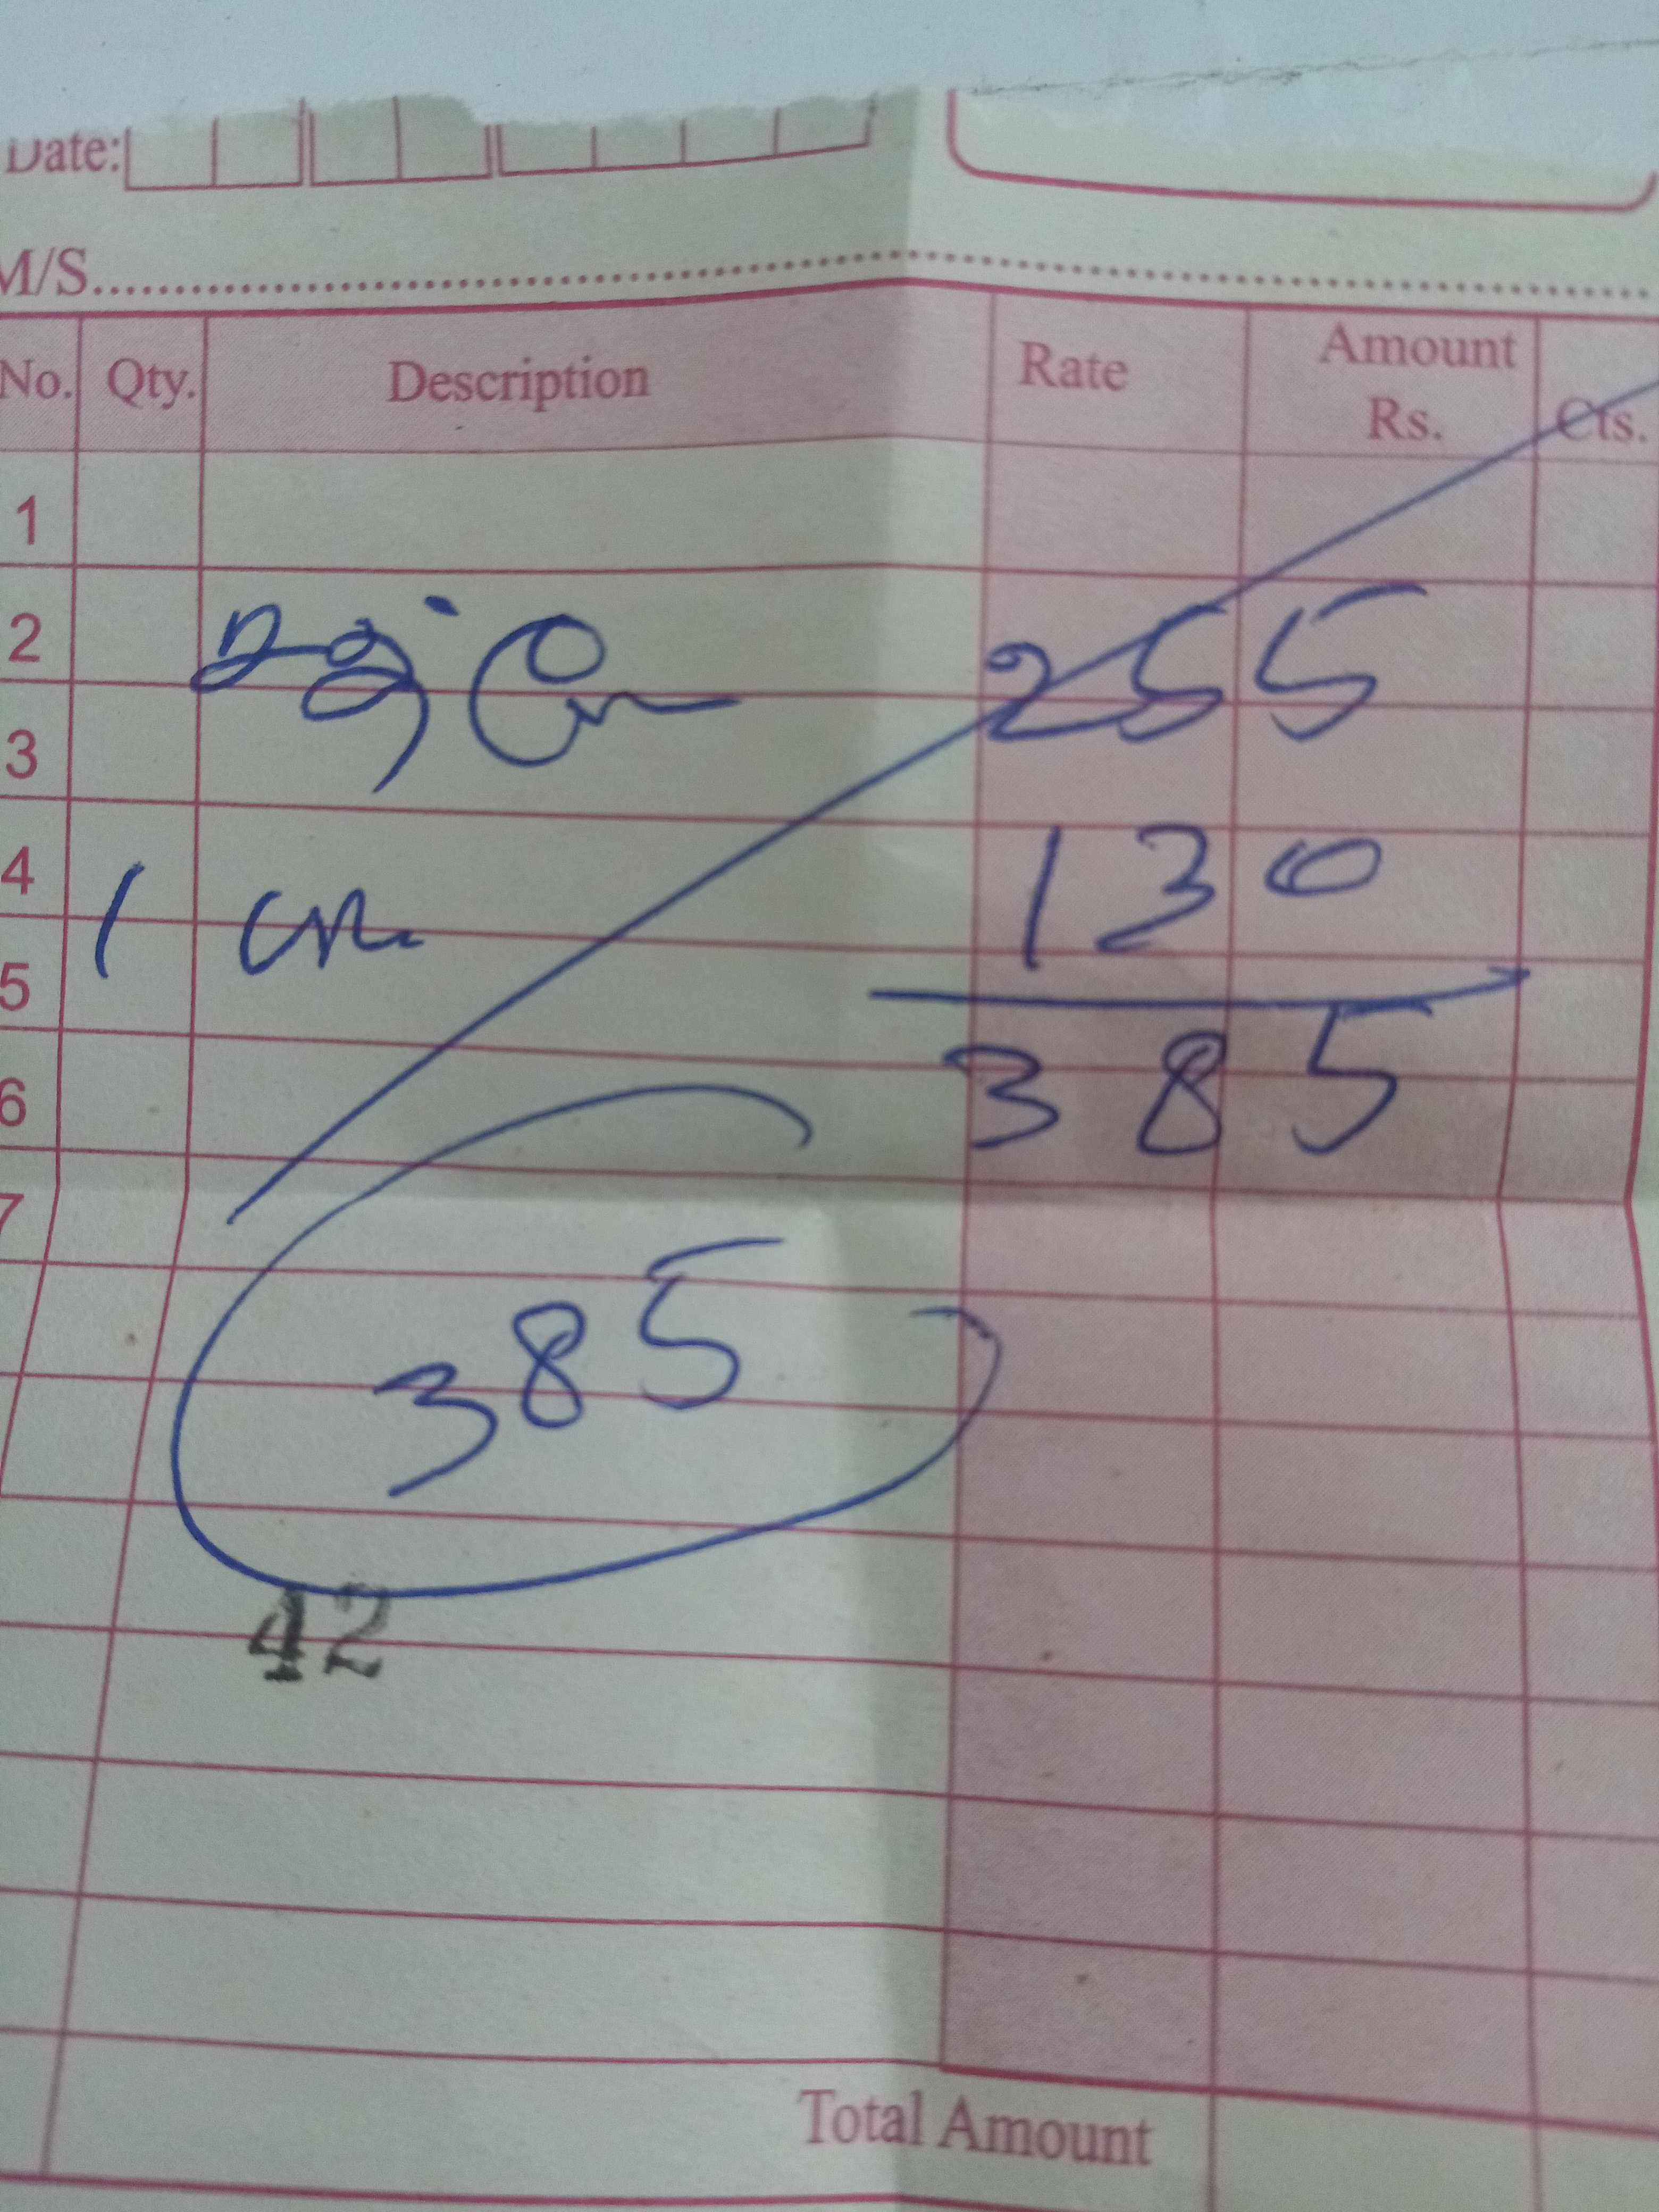 Date:
M/S
No. Qty. Description Rate Amount Rs. Cts.
1
2
255
3
4
130
1
5
385
6
7
385
42
Total Amount